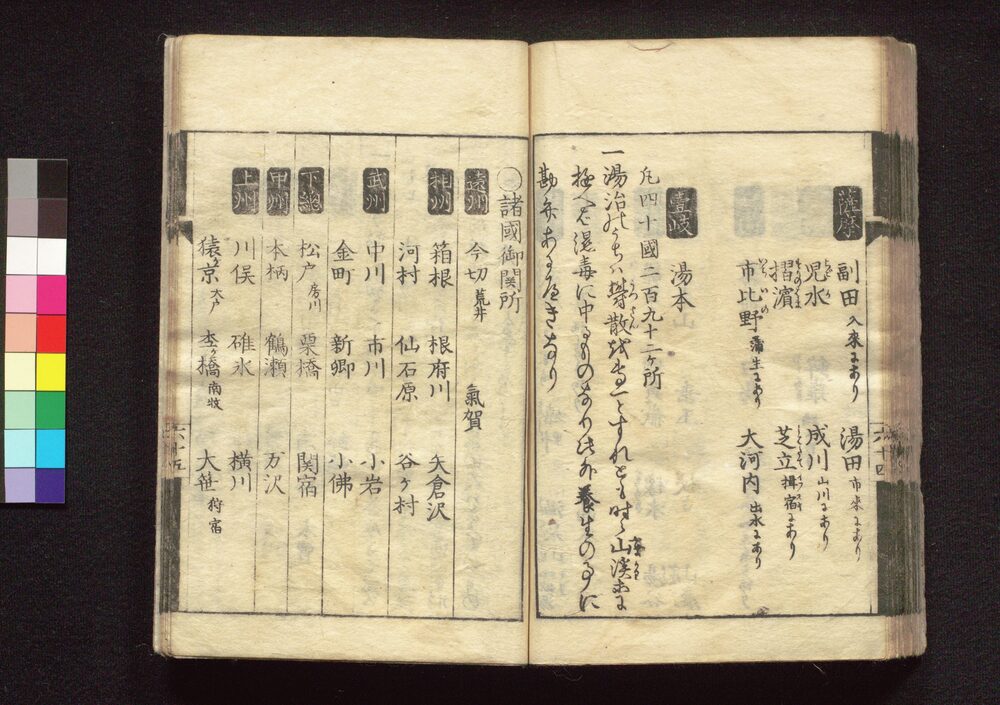 薩摩
副田 入来にあり 湯田 市来にあり
児水 成川 山川にあり
摺濱 芝立 揖宿にあり
市比野 蒲生にあり 大河内 出水にあり
壹岐
湯本
凡四十國二百九十二ヶ所
一湯治のうちハ鬱散を専一とすれとも時々山渓の
極へ 湿毒に中るものなり此外養生の事に
勘弁あるへきなり
六十四
諸國御関所
遠州 今切 荒井 氣賀
相州 箱根 根府川 矢倉沢
河村 仙石原 谷ヶ村
武州 中川 市川 小岩
金町 新郷 小佛
下総 松戸 房川 栗橋 関宿
甲州 本柄 鶴瀬 万沢
上州 川俣 碓氷 横川
猿ヶ京 大戸 杢ヶ橋 南牧 大笹 狩宿
六十五